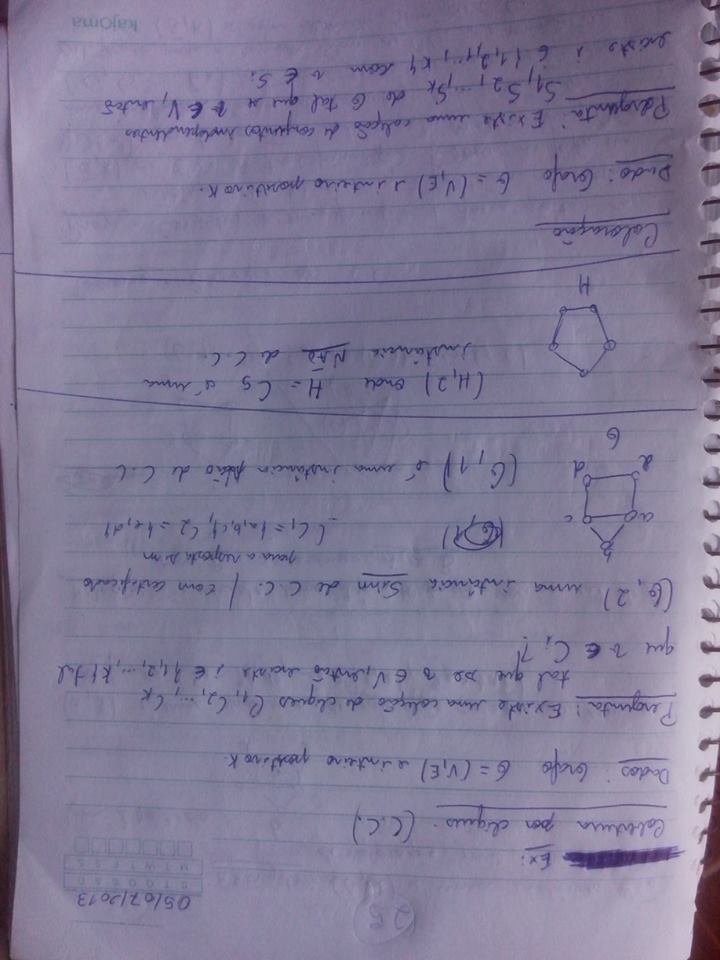 25
05/02/2013
D S T Q Q S S
S M T W T F S
Ex:
Cobertura por cliques. (C.C.)
Dados: Grafo G = (V,E) e inteiro positivo K.
Pergunta: Existe uma coleção de cliques C1, C2, ..., Ck
tal que se v ∈ V, então existe i ∈ {1,2,...,k} tal
que v ∈ Ci?
(G,2) uma instância Sim de C.C. / com certificado
para a resposta sim
C1 = {a,b,c}, C2 = {e,d}
(G,1)
(G,1) é uma instância não de C.C
a b c d e
G
(H,2) onde H = C5 é uma
instância Não de C.C.
H
Coloração
Dado: Grafo G = (V,E) e inteiro positivo K.
Pergunta: Existe uma coleção de conjuntos independentes
S1, S2, ..., Sk de G tal que se v ∈ V, então
existe i ∈ {1,2,...,k} com v ∈ Si
kajoma